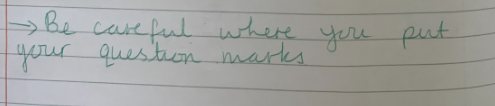 → Be careful where you put
your question marks